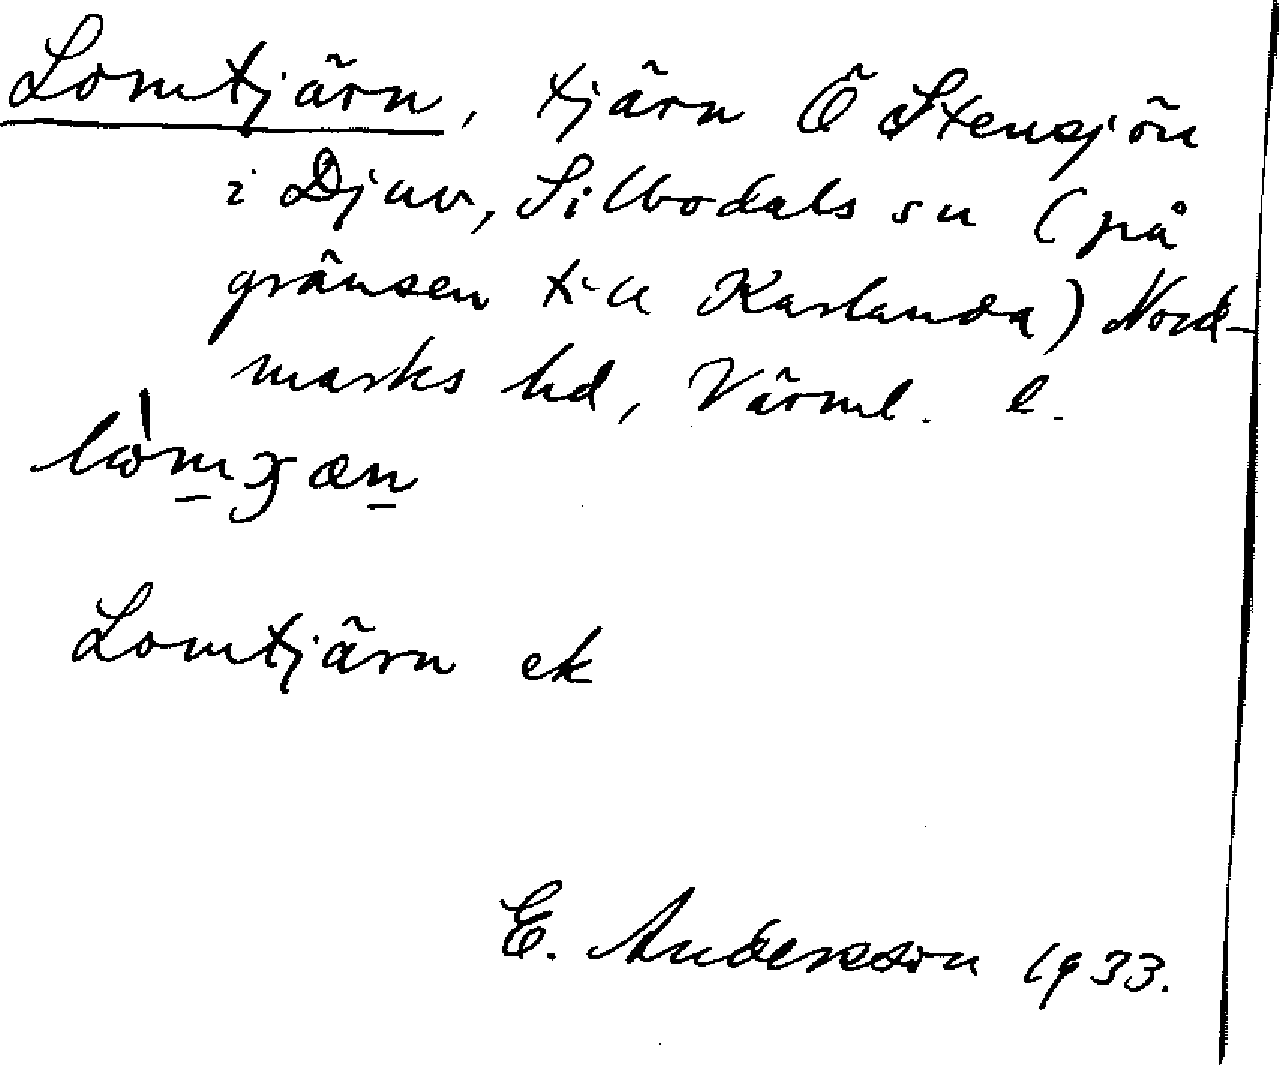 Lomtjärn, tjärn Ö Stensjön
i Djuv, Silbodals sn (på
gränsen till Karlanda) Nord-
marks hd, Värml. l.
Lomtjärn ek
E. Andersson 1933.